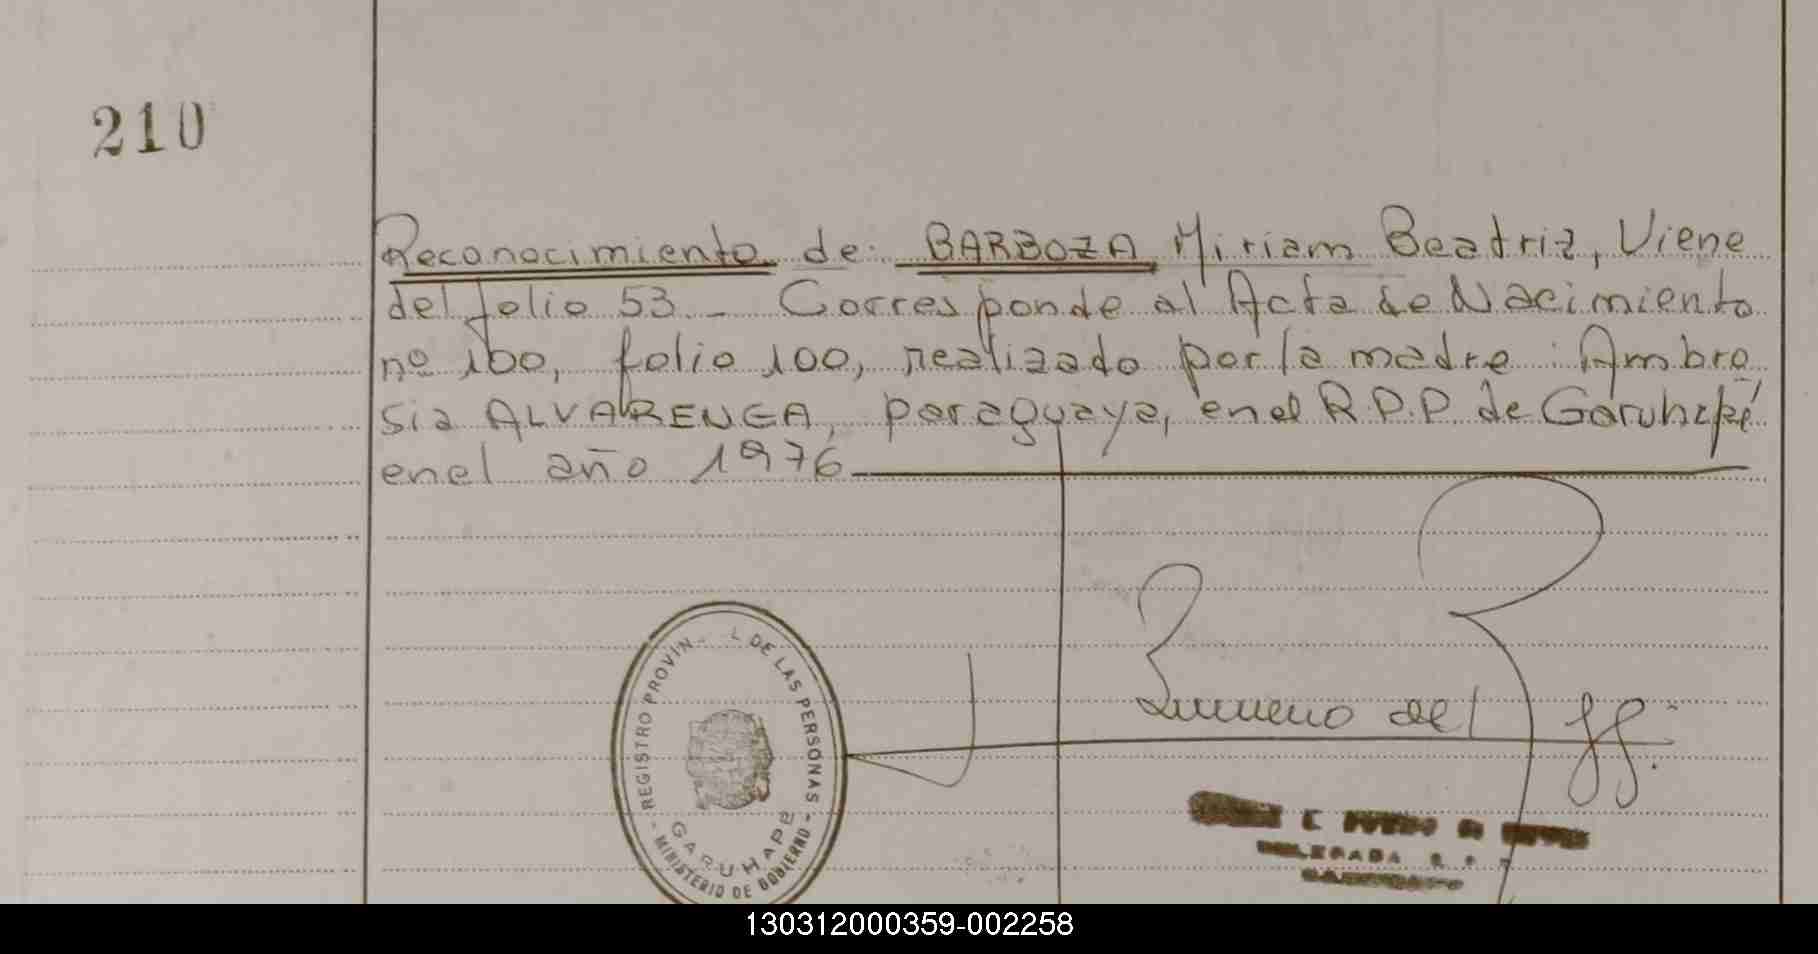 210
Reconocimiento de: BARBOZA Miriam Beatriz, Viene
del folio 53.- Corresponde al Acta de Nacimiento
nº 100, folio 100, realizado por la madre: Ambro
sia ALVARENGA, paraguaya, en el R.P.P. de Garuhapé
en el año 1976
REGISTRO PROVIN L DE LAS PERSONAS
GARUHAPE
- MINISTERIO DE GOBIERNO -
DELEGADA
130312000359-002258